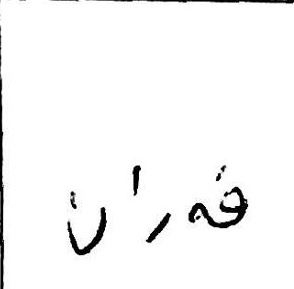 فەران